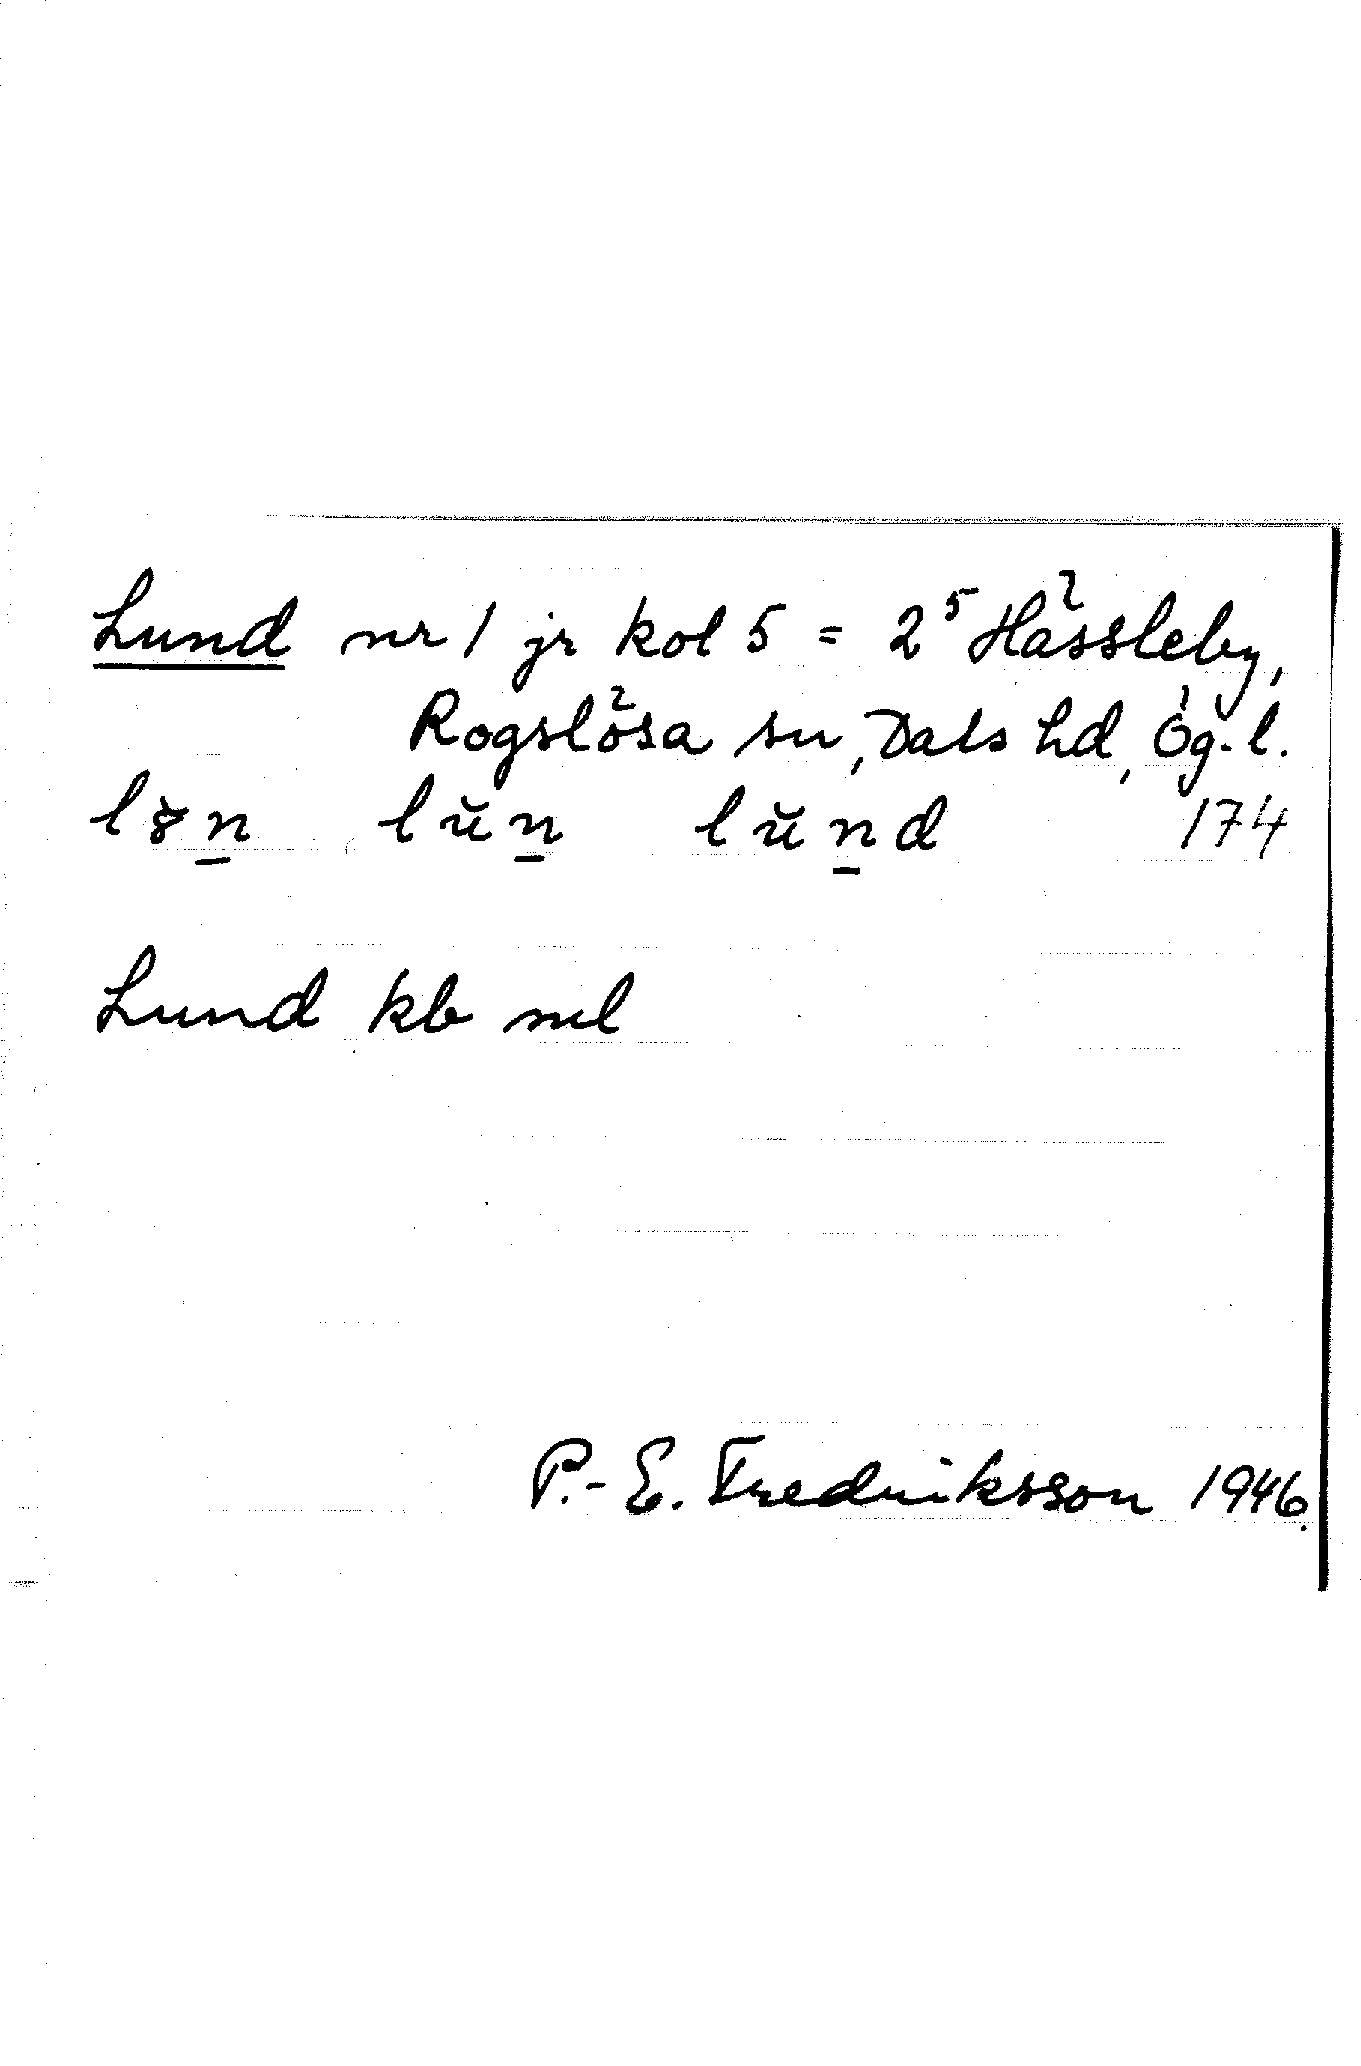 Lund nr 1 jr kol 5 = 2⁵ Hässleby,
Rogslösa sn, Dals hd, Ög. l.
lun̲ lŭn̲ lŭn̲d 174
Lund kb ml
P.-E. Fredriksson 1946.